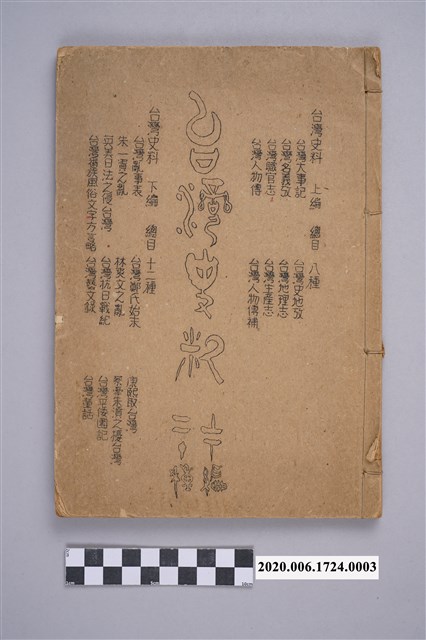 台灣史料 上編 總目 八種
台灣大事記 台灣史地攷
台灣名義攷 台灣地理志
台灣職官志 台灣生產志
台灣人物傳 台灣人物傳補
台灣史料
上下編
二十種
台灣史料 下編 總目 十二種
台灣亂事表 台灣鄭氏始末 康熙取台灣
朱一貴之亂 林爽文之亂 蔡牽朱濆之擾台灣
英美日法之侵台灣 台灣抗日戰記 台灣平倭國記
台灣族風俗文字方言略 台灣藝文錄 台灣童話
2020.006.1724.0003